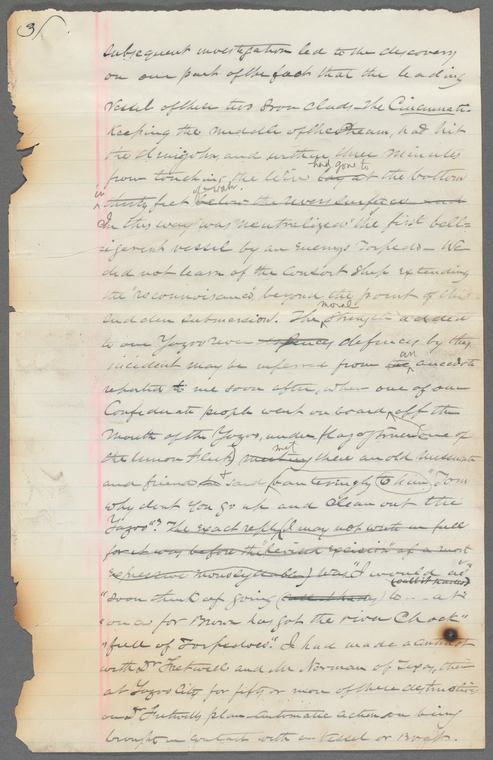 3
subsequent investigation led to the discovery
on our part of the fact that the leading
vessel of these two Iron Clads - The Cincinnati
keeping the middle of the stream, had hit
the demijohn, and within three minutes
had gone to
from touching the letter lay at the bottom
in of water.
thirty feet below the river surface and
In this way was neutralized the first bell-
igerent vessel by an Enemys Torpedo - We
did not learn of the Consort Ship extending
the "reconnoisance" beyond the point of this
moral
sudden submersion. The strength added
to our Yazoo river defences by this
an
incident may be inferred from the anecdote
reported to me soon after, when one of our
Confederate people went on board, off the
Mouth of the Yazoo, under flag of truce one of
met
the Union Fleet, meeting there an old messmate
and friend who said banteringly to him, "Tom
why dont you go up and clean out the
Yazoo"? The exact reply (I may not write in full
for it was before the
expressive monosyllable) was "I would as
(cuss it wards)
"soon think of going to ... at
"once for Brown has got the river Chock"
"full of Torpedoes". I had made a contract
with Dr Fretwell and Mr Norman of Texas, then
at Yazoo City for fifty or more of these destructives
on Dr Fretwells plan - Automatic action on being
brought in contact with a Vessel or Boat.